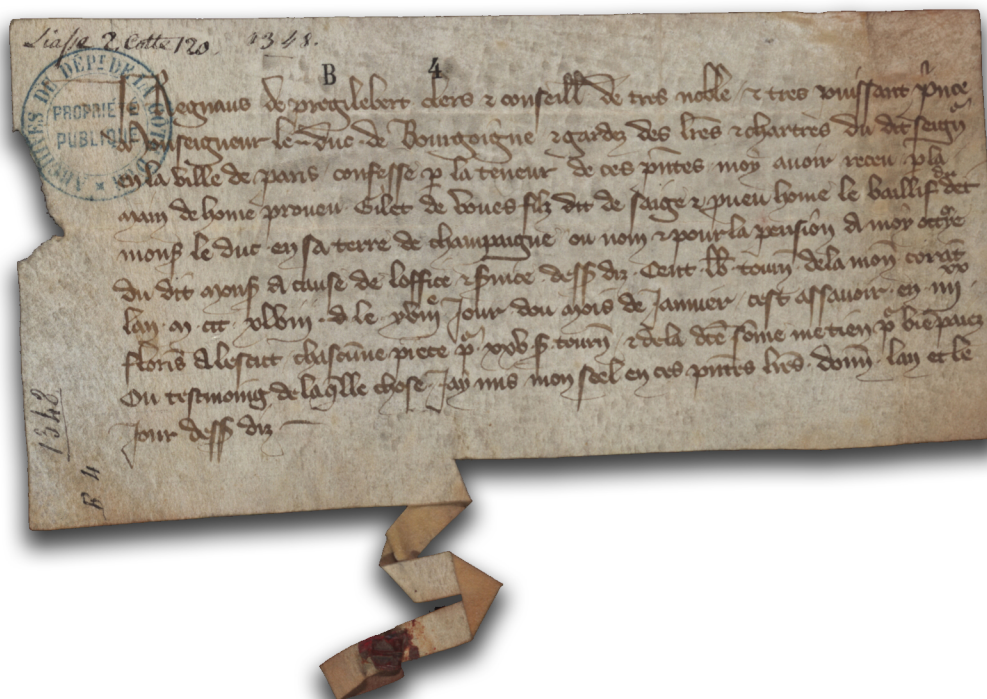 Liasse 2. Cotte 120. 1348.
B 4
ARCHIVES DU DÉPT DE LA CÔTE
PROPRIÉTÉ
PUBLIQUE
Je Regnaus de pregilebert clers & conseill de tres noble & tres puissant pnce
monseigneur le duc de Bourgoigne & garde des lres & chartres du dit seign
en la ville de paris confesse p la teneur de ces pntes moy avoir receu p la
main de home proveu Gilet de filz dit de saige & pveu home le baillif dudit
mons le duc en sa terre de champaigne ou nom & pour la pension a moy
du dit mons a cause de loffice & svice dess diz Cent lb tourn de la mon corat
lan m ccc xlviii le xviii e jour dou mois de Janvier cest assavoir en iiii xx
floris a lescut chascune piece p xxv s tourn & de la dce some me tien p bie paiez
Ou tesmoing de laqlle chose Jay mis mon seel en ces pntes lres donn lan et le
jour dess diz
1348
B 4